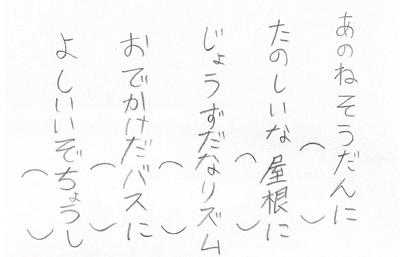 あのねそうだんに
（　）
たのしいな屋根に
（　）
じょうずだなリズム
（　）
おでかけだバスに
（　）
よしいいぞちょうし
（　）